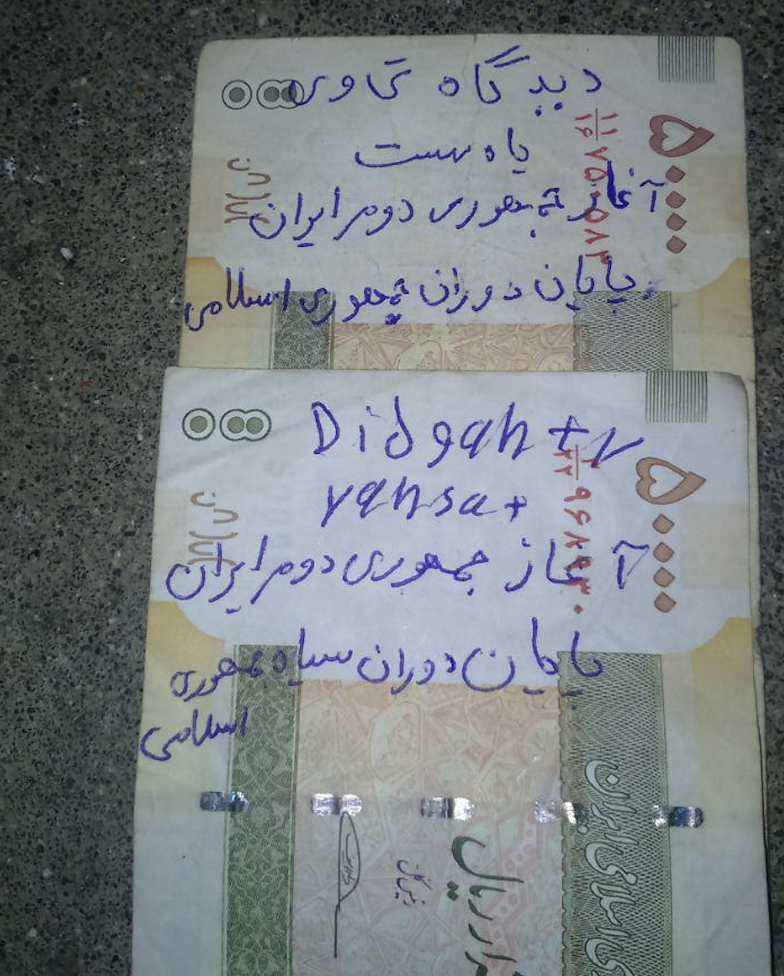 دیدگاه تی وی
یاه ست
آغاز جمهوری دوم ایران
پایان دوران جمهوری اسلامی
۵۰۰۰۰
۱۱
۱۶
Didgah tv
yahsat
آغاز جمهوری دوم ایران
پایان دوران سیاه جمهوری
اسلامی
۵۰۰۰۰
ریال